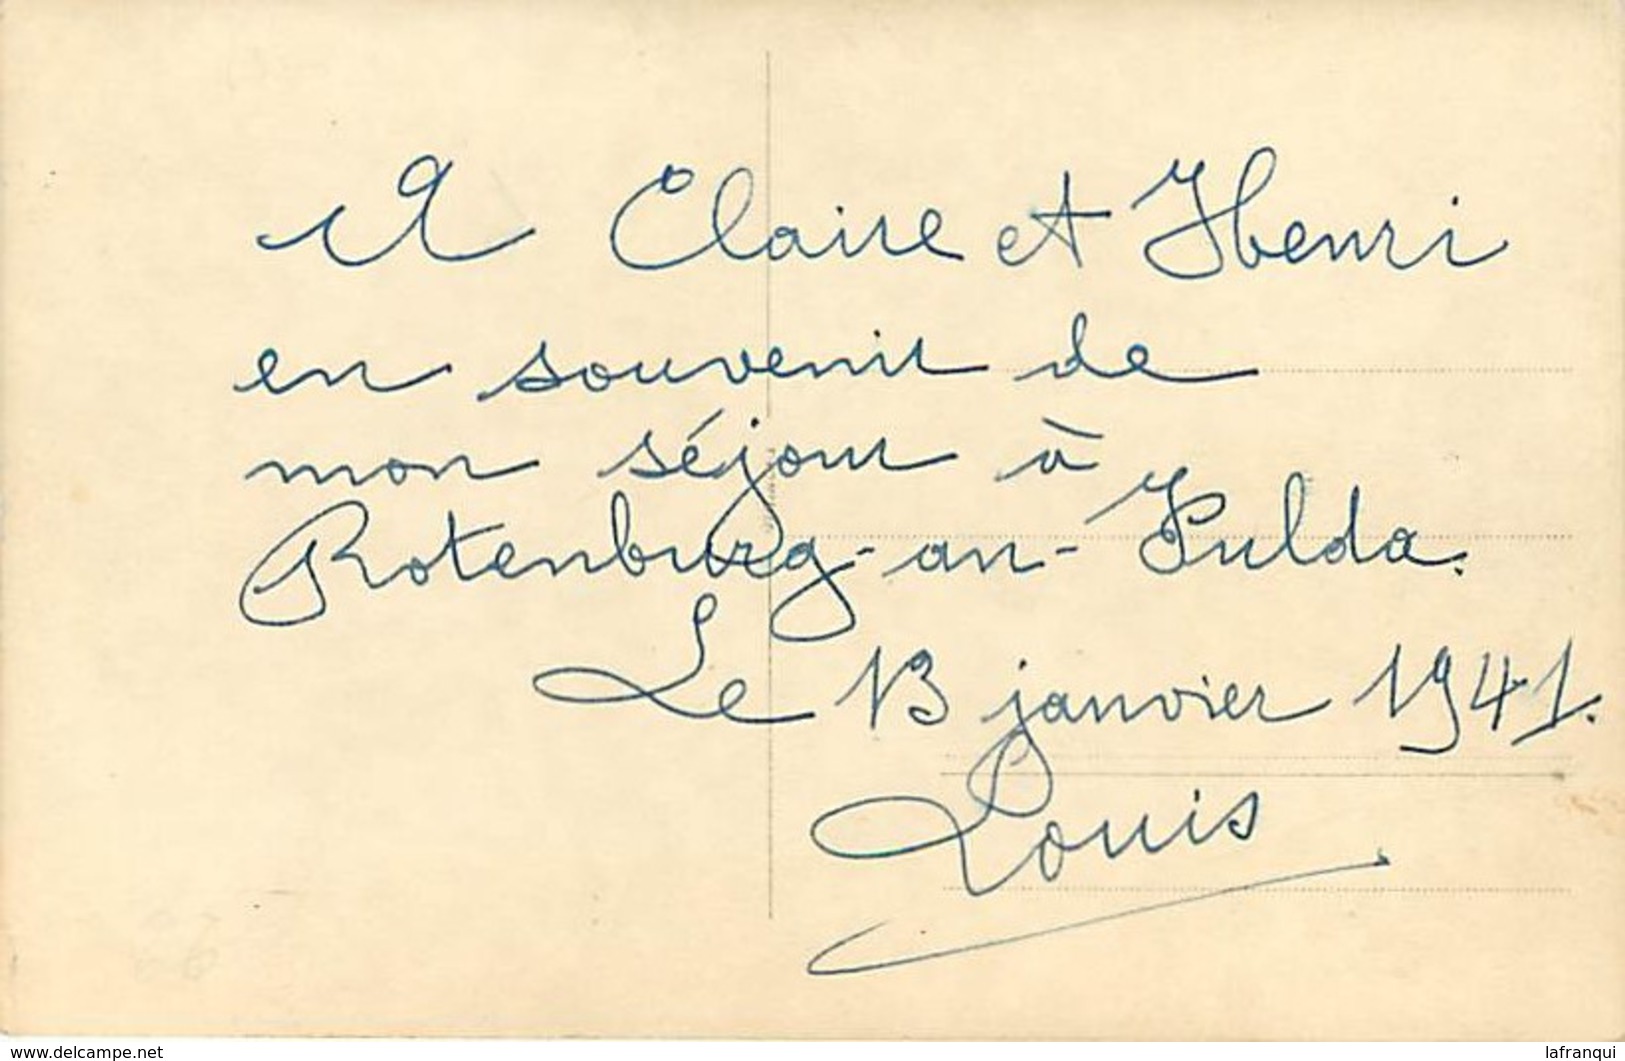 A Claire et Henri
en souvenir de
mon séjour à
Rotenburg-an-Fulda.
Le 13 janvier 1941.
Louis
www.delcampe.net
lafranqui